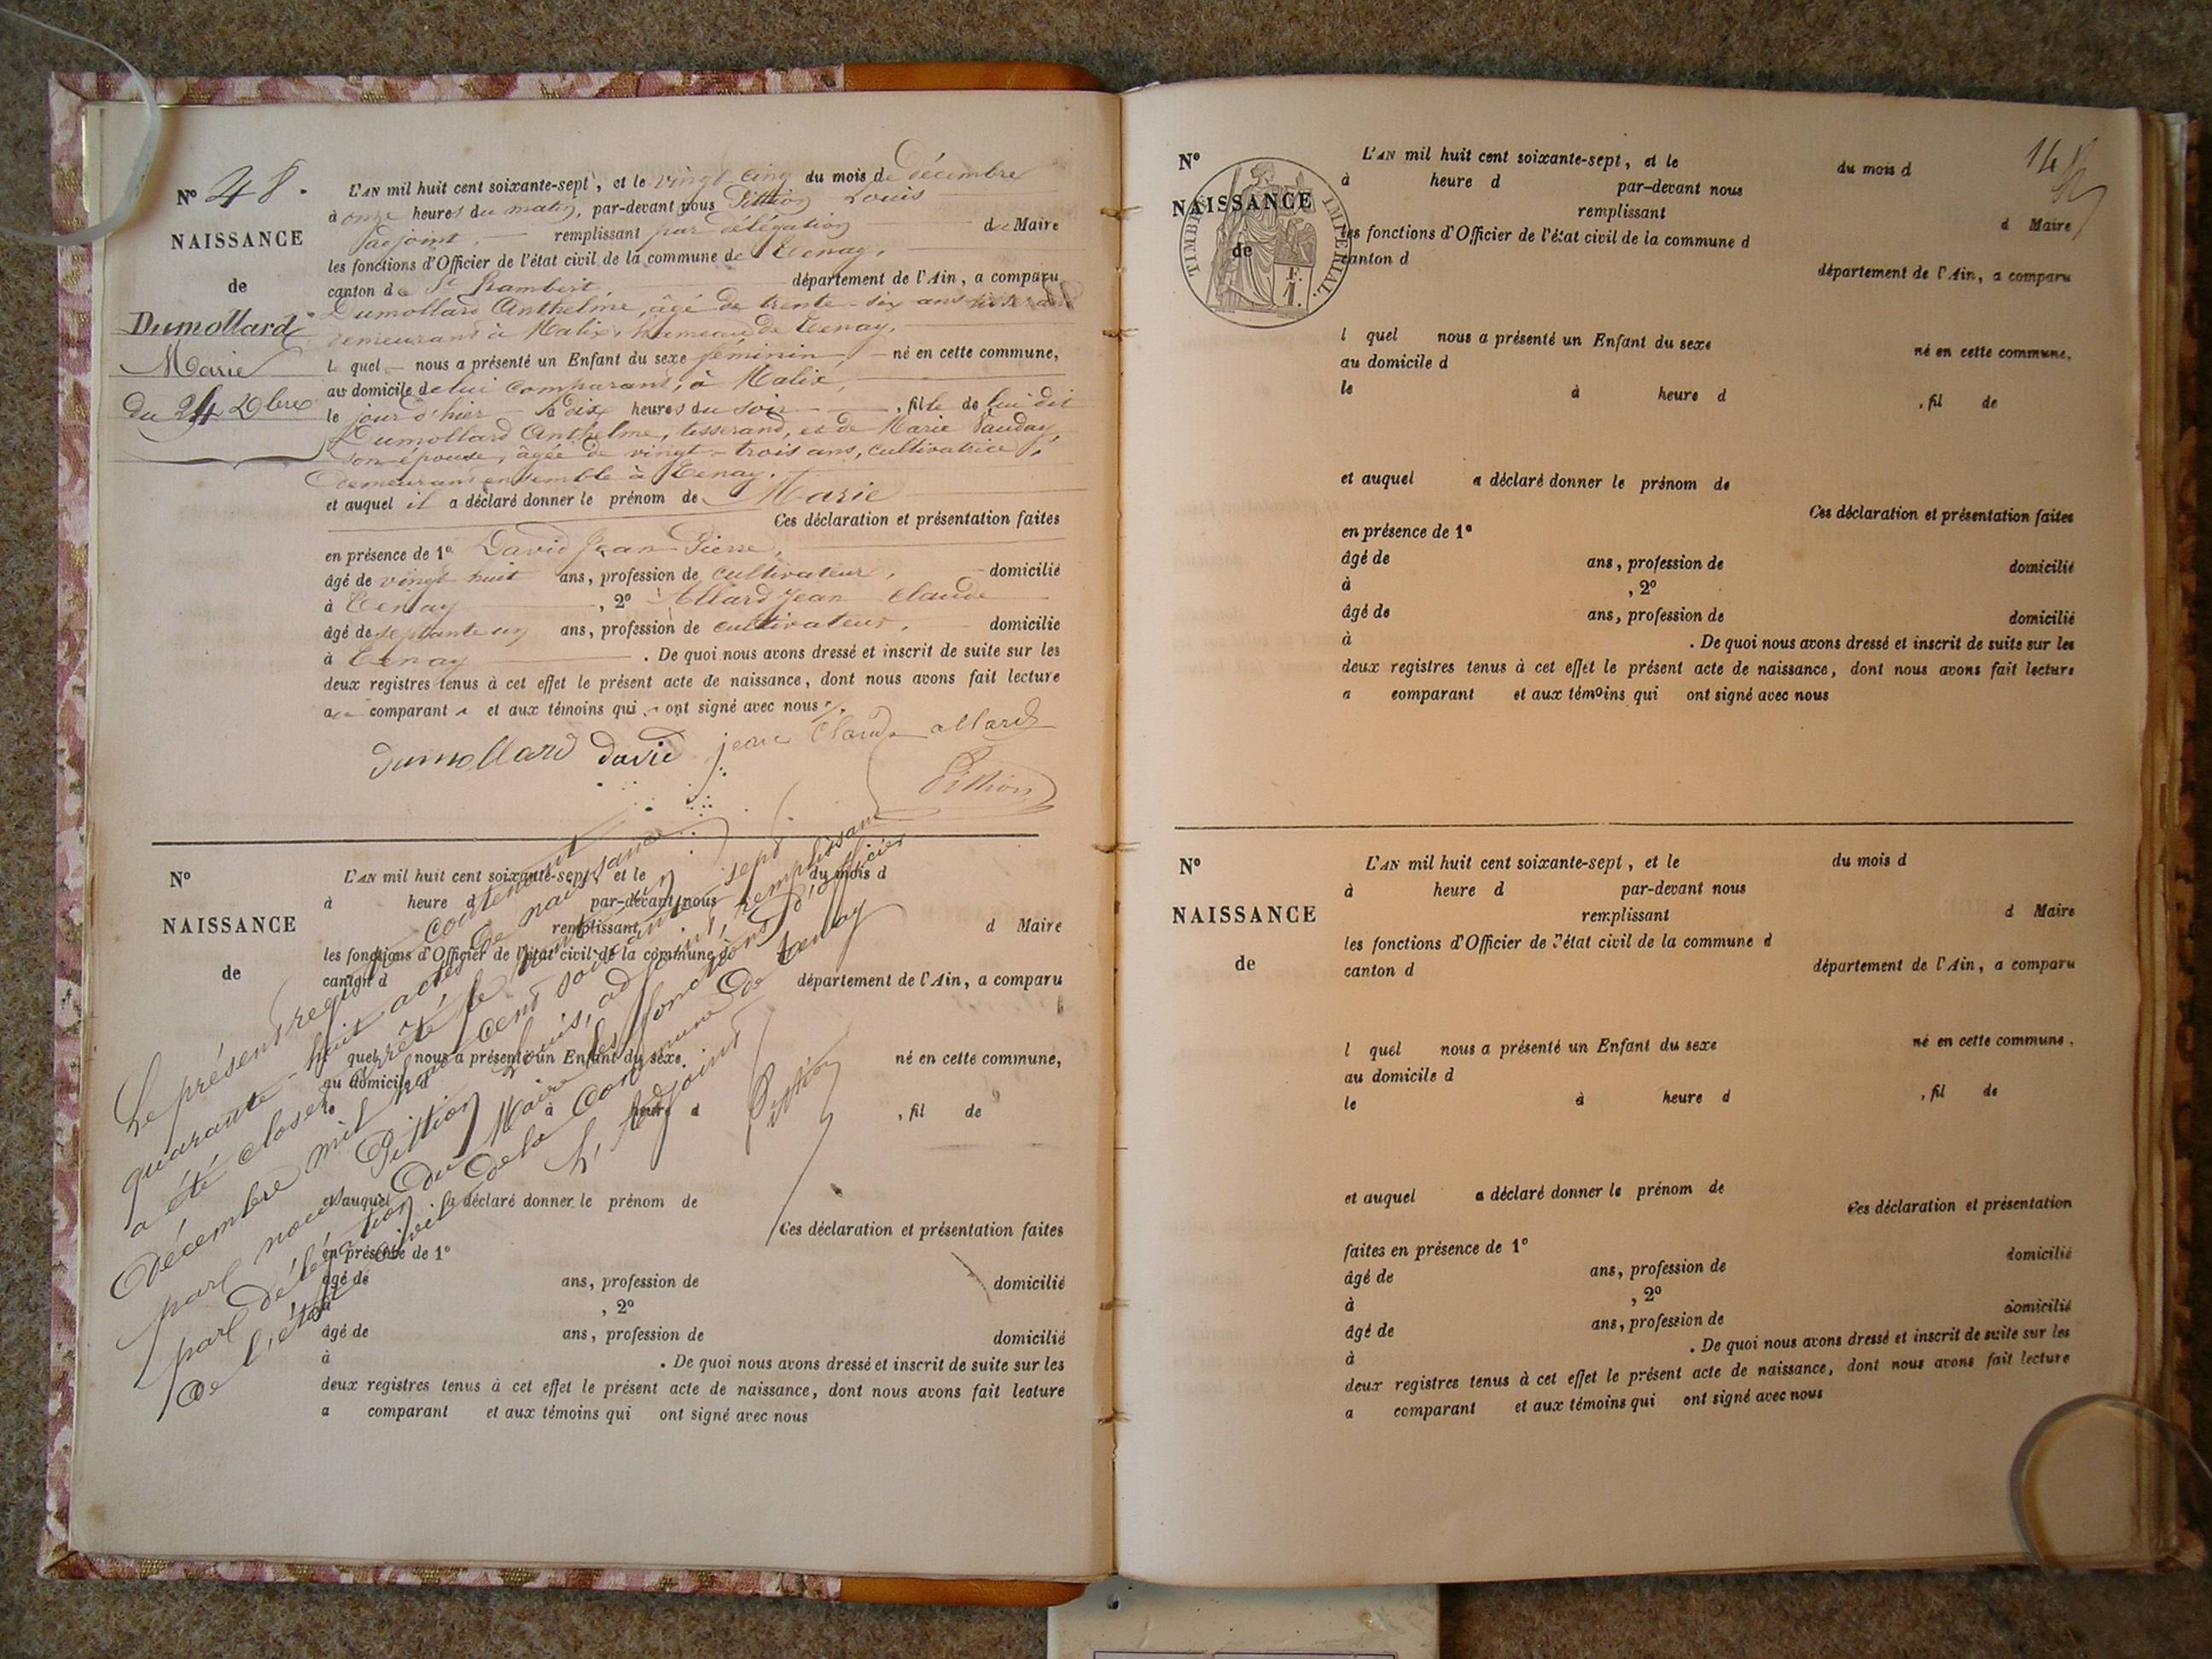 N° 48.
NAISSANCE
de
Dumollard
Marie
du 24 Xbre
L'AN mil huit cent soixante-sept, et le vingt cinq du mois de décembre
à onze heures du matin, par-devant nous Pittion Louis
adjoint, remplissant par délégation du Maire
les fonctions d'Officier de l'état civil de la commune de Tenay,
canton de St Rambert, département de l'Ain, a comparu
Dumollard Anthelme, âgé de trente-six ans tisserand
demeurant à Malix, hameau de Tenay,
le quel nous a présenté un Enfant du sexe féminin, né en cette commune,
au domicile de lui comparant, à Malix,
le jour d'hier à dix heures du soir, fille de lui dit
Dumollard Anthelme, tisserand, et de Marie Vauday,
son épouse, âgée de vingt-trois ans, cultivatrice,
demeurant ensemble à Tenay.
et auquel il a déclaré donner le prénom de Marie
Ces déclaration et présentation faites
en présence de 1° David Jean Pierre,
âgé de vingt huit ans, profession de cultivateur, domicilié
à Tenay, 2° Allard Jean Claude
âgé de septante un ans, profession de cultivateur, domicilié
à Tenay. De quoi nous avons dressé et inscrit de suite sur les
deux registres tenus à cet effet le présent acte de naissance, dont nous avons fait lecture
au comparant et aux témoins qui ont signé avec nous
Dumollard David jean Claude allard
Pittion
N°
NAISSANCE
de
L'AN mil huit cent soixante-sept, et le du mois d
à heure d par-devant nous
remplissant d Maire
les fonctions d'Officier de l'état civil de la commune d
canton d département de l'Ain, a comparu
quel nous a présenté un Enfant du sexe né en cette commune,
au domicile d
le à heure d , fil de
et auquel a déclaré donner le prénom de
Ces déclaration et présentation faites
en présence de 1°
âgé de ans, profession de domicilié
à , 2°
âgé de ans, profession de domicilié
à . De quoi nous avons dressé et inscrit de suite sur les
deux registres tenus à cet effet le présent acte de naissance, dont nous avons fait lecture
a comparant et aux témoins qui ont signé avec nous
Le présent registre contenant
quarante-huit actes de naissance
a été clos et arrêté le trente un
décembre mil huit cent soixante sept
par nous Pittion Louis, adjoint, remplissant
par délégation du Maire les fonctions d'officier
de l'état civil de la Commune de Tenay
L'Adjoint
Pittion
148
N°
NAISSANCE
de
TIMBRE IMPERIAL.
L'AN mil huit cent soixante-sept, et le du mois d
à heure d par-devant nous
remplissant d Maire
les fonctions d'Officier de l'état civil de la commune d
canton d département de l'Ain, a comparu
l quel nous a présenté un Enfant du sexe né en cette commune,
au domicile d
le à heure d , fil de
et auquel a déclaré donner le prénom de
Ces déclaration et présentation faites
en présence de 1°
âgé de ans, profession de domicilié
à , 2°
âgé de ans, profession de domicilié
à . De quoi nous avons dressé et inscrit de suite sur les
deux registres tenus à cet effet le présent acte de naissance, dont nous avons fait lecture
a comparant et aux témoins qui ont signé avec nous
N°
NAISSANCE
de
L'AN mil huit cent soixante-sept, et le du mois d
à heure d par-devant nous
remplissant d Maire
les fonctions d'Officier de l'état civil de la commune d
canton d département de l'Ain, a comparu
l quel nous a présenté un Enfant du sexe né en cette commune,
au domicile d
le à heure d , fil de
et auquel a déclaré donner le prénom de
Ces déclaration et présentation
faites en présence de 1° domicilié
âgé de ans, profession de
à , 2° domicilié
âgé de ans, profession de
à . De quoi nous avons dressé et inscrit de suite sur les
deux registres tenus à cet effet le présent acte de naissance, dont nous avons fait lecture
a comparant et aux témoins qui ont signé avec nous